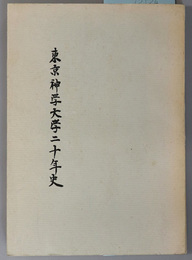 東京神学大学二十年史